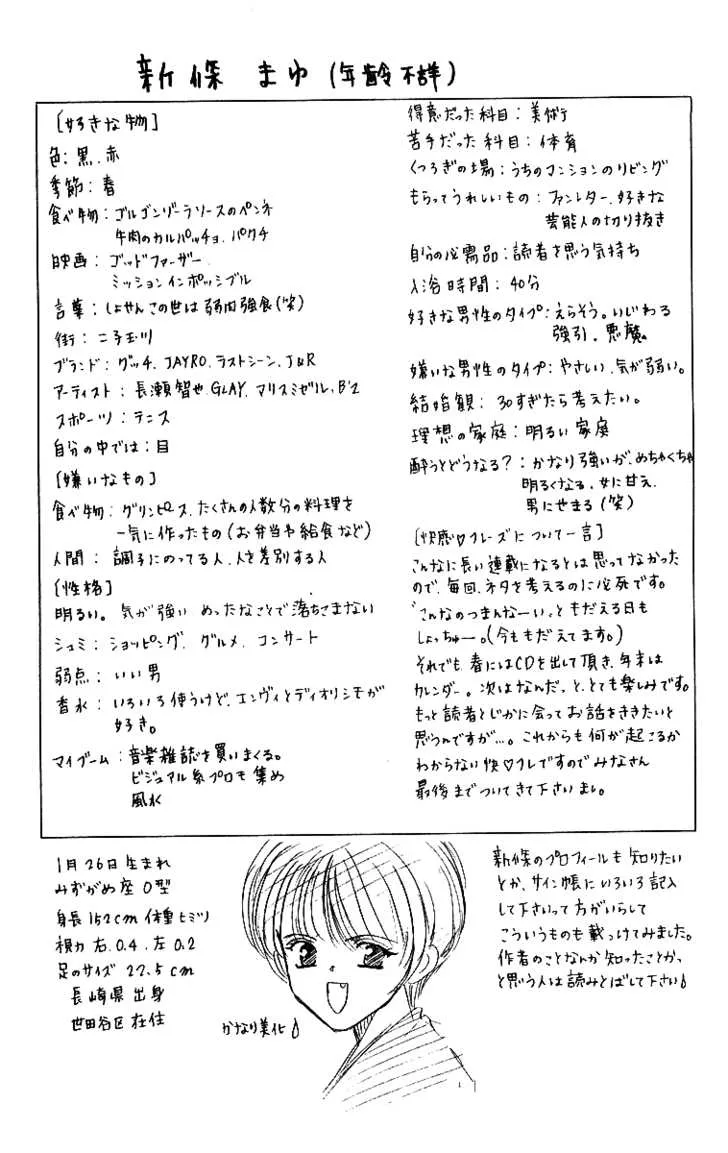 新條 まゆ (年齢不詳)
[好きな物]
色:黒、赤
季節:春
食べ物:ゴルゴンゾーラソースのペンネ
牛肉のカルパッチョ、パクチ
映画:ゴッドファーザー、
ミッションインポッシブル
言葉:しょせんこの世は弱肉強食(笑)
街:二子玉川
ブランド:グッチ、JAYRO、ラストシーン、J&R
アーティスト:長瀬智也、GLAY、マリスミゼル、B'z
スポーツ:テニス
自分の中では:目
[嫌いなもの]
食べ物:グリンピース、たくさんの人数分の料理を
一気に作ったもの(お弁当や給食など)
人間:調子にのってる人、人を差別する人
[性格]
明るい。気が強い めったなことで落ちこまない
シュミ:ショッピング、グルメ、コンサート
弱点:いい男
香水:いろいろ使うけど、エンヴィとディオリシモが
好き。
マイブーム:音楽雑誌を買いまくる。
ビジュアル系プロモ集め
風水
得意だった科目:美術
苦手だった科目:体育
くつろぎの場:うちのマンションのリビング
もらってうれしいもの:ファンレター、好きな
芸能人の切り抜き
自分の必需品:読者を思う気持ち
入浴時間:40分
好きな男性のタイプ:えらそう。いじわる
強引、悪魔。
嫌いな男性のタイプ:やさしい、気が弱い。
結婚観:30すぎたら考えたい。
理想の家庭:明るい家庭
酔うとどうなる?:かなり強いが、めちゃくちゃ
明るくなる、女に甘え、
男にせまる(笑)
[快感♡フレーズについて一言]
こんなに長い連載になるとは思ってなかった
ので、毎回、ネタを考えるのに必死です。
「こんなのつまんなーい」ともだえる日も
しょっちゅー。(今ももだえてます。)
それでも春にはCDを出して頂き、年末は
カレンダー。次はなんだっと、とても楽しみです。
もっと読者とじかに会ってお話をききたいと
思うんですが…。これからも何が起こるか
わからない快♡フレですのでみなさん
最後までついてきて下さいませ。
1月26日生まれ
みずがめ座 O型
身長152cm 体重ヒミツ
視力 右、0.4、左0.2
足のサイズ 22.5cm
長崎県出身
世田谷区在住
かなり美化♪
新條のプロフィールも知りたい
とか、サイン帳にいろいろ記入
して下さいって方がいらして
こういうものも載っけてみました。
作者のことなんか知ったことかっ
と思う人は読みとばして下さい♪